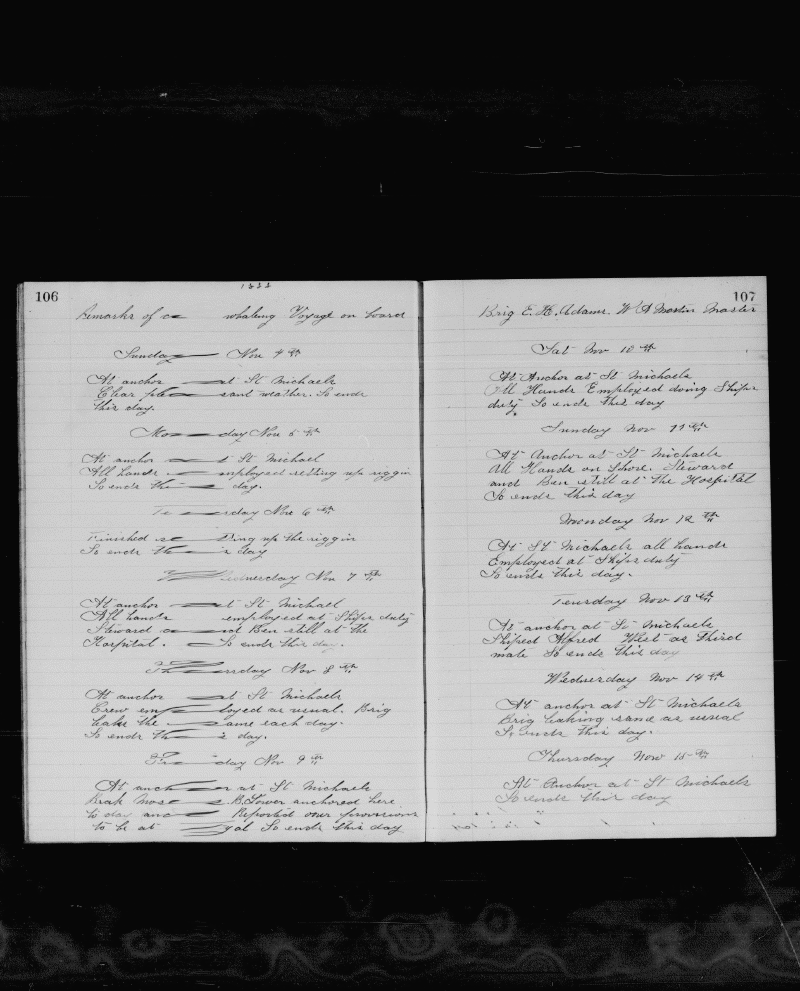 106
1888
Remarks of a whaling Voyage on board
Sunday Nov 4th
At anchor at St Michaels
Clear pleasant wather. So ends
this day.
Monday Nov 5th
At anchor at St Michael
All hands employed setting up riggin
So ends this day.
Teusday Nov 6th
Finished setting up the riggin
So ends this day
Wednesday Nov 7th
At anchor at St Michael
All hands employed at Ships duty
Steward and Ben still at the
Hospital. So ends this day.
Thursday Nov 8th
At anchor at St Michaels
Crew employed as usual. Brig
Leaks the same each day.
So ends this day.
Friday Nov 9th
At anchor at St Michaels
Bark Mose B. Tower anchored here
to day and Reported our provisions
to be at So ends this day
107
Brig E. H. Adams. W A Martin Master
Sat Nov 10th
At Anchor at St Michaels
All Hands Employed doing Ships
duty. So ends this day
Sunday Nov 11th
At Anchor at St Michaels
All Hands on Shore. Steward
and Ben still at the Hospital
So ends this day
Monday Nov 12th
At St Michaels all hands
Employed at Ships duty
So ends this day.
Teusday Nov 13th
At anchor at St Michaels
Shiped Alfred West as third
mate So ends this day
Wednesday Nov 14th
At anchor at St Michaels
Brig leaking same as usual
So ends this day.
Thursday Nov 15th
At Anchor at St Michaels
So ends this day